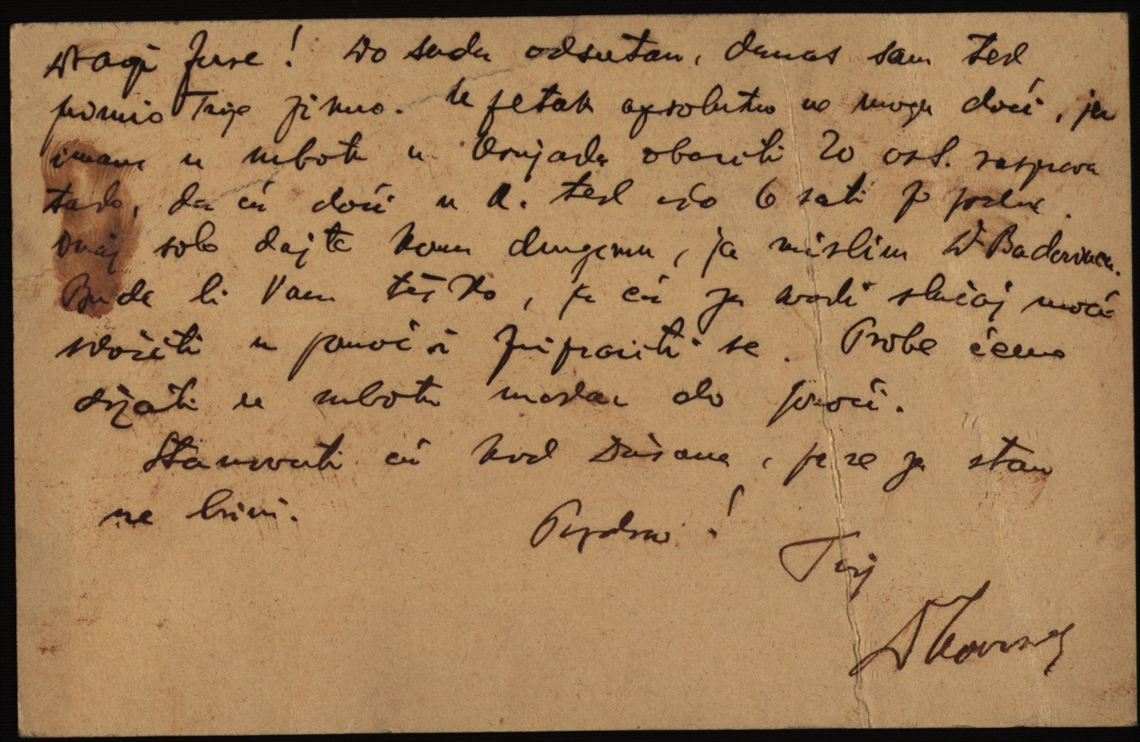 Dragi Jure! Do sada odsutan, danas sam tek
primio Tvoje pismo. U petak apsolutno ne mogu doći, jer
imam u subotu u obaviti 20 ost. rasprava
tako, da ću doći u K. tek oko 6 sati p. podne.
Ovaj solo dajte kom drugom, ja mislim D Badovinca.
Bude li Vam teško, ja ću za svaki slučaj moći
stići u pomoć i se. Probe ćemo
držati u subotu navečer do ponoći.
Stanovati ću kod Dušana, pa se za stan
ne brini.
Pozdrav!
Tvoj